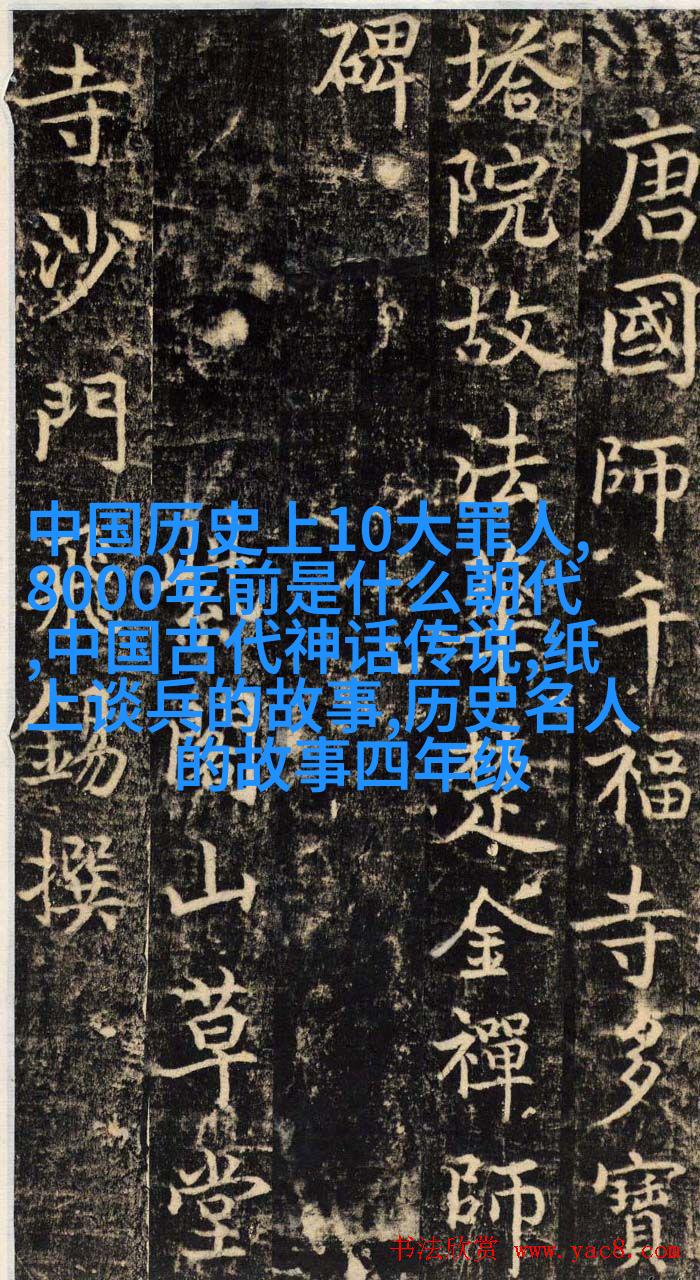 唐國師千福寺多寶
塔院故法華楚金禪師
碑
紫閣山草堂
寺沙門飛錫撰
中国历史上10大罪人,
8000年前是什么朝代
,中国古代神话传说,纸
上谈兵的故事,历史名人
的故事四年级
书法欣赏 www.yac8.com